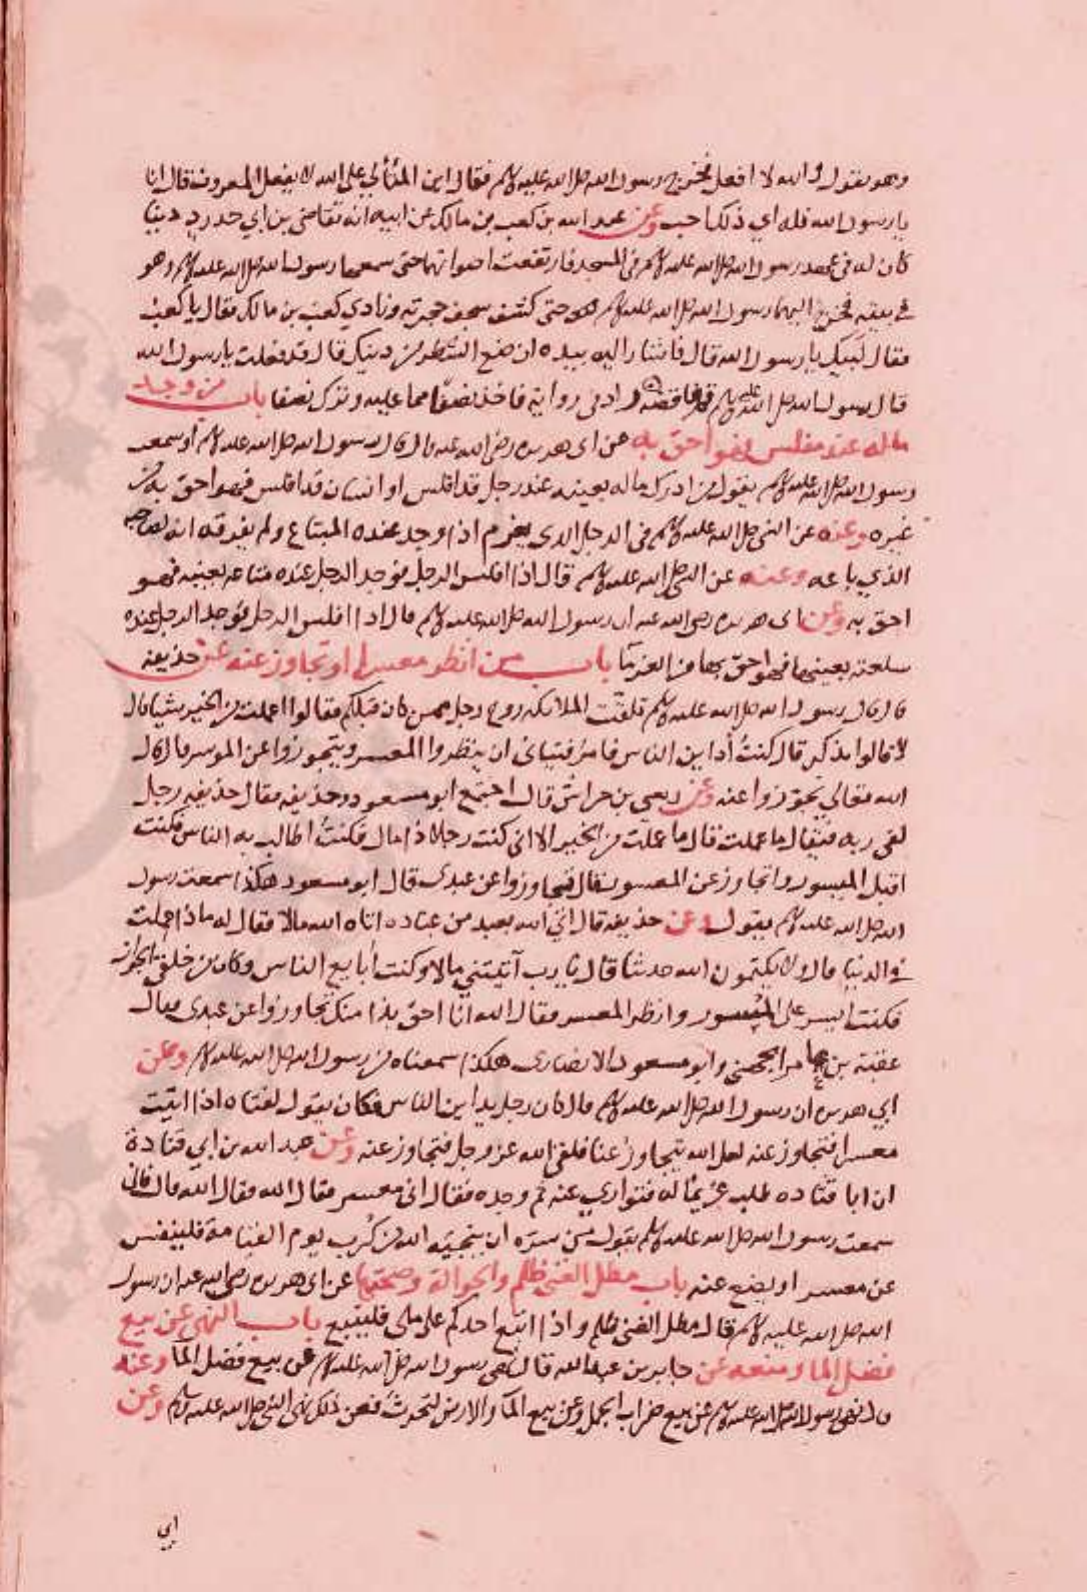 وهو يقول والله لا افعل فخرج رسول الله صلى الله عليه وسلم فقال اين المتألي على الله لا يفعل المعروف قال انا
يا رسول الله فله اي ذلك احب وعن عبد الله بن كعب بن مالك عن ابيه انه تقاضى بن ابي حدرد دينا
كان له في عهد رسول الله صلى الله عليه وسلم في المسجد فارتفعت اصواتهما حتى سمعها رسول الله صلى الله عليه وسلم وهو
في بيته فخرج اليهما رسول الله صلى الله عليه وسلم حتى كشف سجف حجرته ونادي كعب بن مالك فقال يا كعب
فقال لبيك يا رسول الله قال فاشار اليه بيده ان ضع الشطر من دينك قال قد فعلت يا رسول الله
قال رسول الله صلى الله عليه وسلم قم فاقضه وفي رواية فاخذ نصفا مما عليه وترك نصفا باب من وجد
ماله عند مفلس فهو احق به عن ابي هريره رضي الله عنه قال قال رسول الله صلى الله عليه وسلم او سمعت
رسول الله صلى الله عليه وسلم يقول من ادرك ماله بعينه عند رجل قد افلس او انسان قد افلس فهو احق به من
غيره وعنه عن النبي صلى الله عليه وسلم في الرجل الذي يعدم اذا وجد عنده المتاع ولم يفرقه انه لصاحبه
الذي باعه وعنه عن النبي صلى الله عليه وسلم قال اذا افلس الرجل فوجد الرجل عنده متاعه بعينه فهو
احق به وعن ابي هريره رضي الله عنه ان رسول الله صلى الله عليه وسلم قال اذا افلس الرجل فوجد الرجل عنده
سلعته بعينها فهو احق بها من الغرما باب من انظر معسرا او تجاوز عنه عن حذيفة
قال قال رسول الله صلى الله عليه وسلم تلقت الملائكه روح رجل ممن كان قبلكم فقالوا اعملت من الخير شيا قال
لا قالوا تذكر قال كنت أداين الناس فامر فتياني ان ينظروا المعسر ويتجوزوا عن الموسر قال قال
الله تعالي تجوزوا عنه وعن ربعي بن حراش قال اجتمع ابو مسعود وحذيفه فقال حذيفه رجل
لقي ربه فقال ما عملت قال ما عملت من الخير الا اني كنت رجلا ذا مال فكنت اطالب به الناس فكنت
اقبل الميسور واتجاوز عن المعسور فقال تجاوزوا عن عبدي قال ابو مسعود هكذا سمعت رسول
الله صلى الله عليه وسلم يقول وعن حذيفه قال اتي الله بعبد من عباده اتاه الله مالا فقال له ماذا عملت
في الدنيا قال ولا يكتمون الله حديثا قال يا رب آتيتني مالا وكنت أبايع الناس وكان من خلقي الجواز
فكنت ايسر على الميسور وانظر المعسر فقال الله انا احق بذا منك تجاوزوا عن عبدي فقال
عقبة بن عامر الجهني وابو مسعود الانصاري هكذا سمعناه من رسول الله صلى الله عليه وسلم وعن
ابي هريره ان رسول الله صلى الله عليه وسلم قال كان رجل يداين الناس فكان يقول لفتاه اذا اتيت
معسرا فتجاوز عنه لعل الله يتجاوز عنا فلقي الله عز وجل فتجاوز عنه وعن عبد الله بن ابي قتادة
ان ابا قتاده طلب غريما له فتواري عنه ثم وجده فقال اني معسر فقال الله فقال الله قال فاني
سمعت رسول الله صلى الله عليه وسلم يقول من سره ان ينجيه الله من كرب يوم القيامة فلينفس
عن معسر او يضع عنه باب مطل الغني ظلم والحوالة وصحتها عن ابي هريره رضي الله عنه ان رسول
الله صلى الله عليه وسلم قال مطل الغني ظلم واذا اتبع احدكم على ملي فليتبع باب النهي عن بيع
فضل الما ومنعه عن جابر بن عبد الله قال نهى رسول الله صلى الله عليه وسلم عن بيع فضل الما وعنه
قال نهى رسول الله صلى الله عليه وسلم عن بيع ضراب الجمل وعن بيع الما والارض لتحرث فعن ذلك نهى النبي صلى الله عليه وسلم وعن
ابي